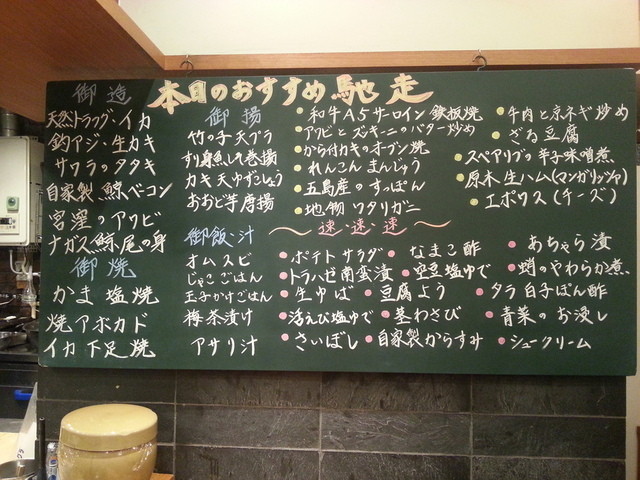 本日のおすすめ馳走
御造
天然トラフグ・イカ
釣アジ・生カキ
サワラのタタキ
自家製鯨ベーコン
宮窪のアワビ
ナガス鯨尾の身
御焼
かま塩焼
焼アボカド
イカ下足焼
御揚
竹の子天プラ
すり身魚しそ巻揚
カキ天ゆずしょう
おおど芋唐揚
御飯・汁
オムスビ
じゃこごはん
玉子かけごはん
梅茶漬け
アサリ汁
和牛A5サーロイン鉄板焼
アワビとズッキーニのバター炒め
から付カキのオーブン焼
れんこんまんじゅう
五島産のすっぽん
地物ワタリガニ
牛肉と京ネギ炒め
ざる豆腐
スペアリブの辛子味噌煮
原木生ハム(マンガリッツァ)
エポワス(チーズ)
速・速・速
ポテトサラダ
なまこ酢
あちゃら漬
トラハゼ南蛮漬
空豆塩ゆで
蛸のやわらか煮
生ゆば
豆腐よう
タラ白子ぽん酢
活えび塩ゆで
茎わさび
青菜のお浸し
さいぼし
自家製からすみ
シュークリーム